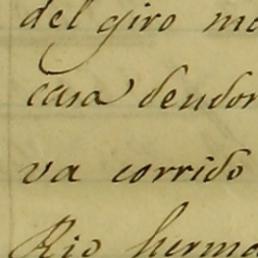 del giro mo
casa deudor
va corrido
Rio herma